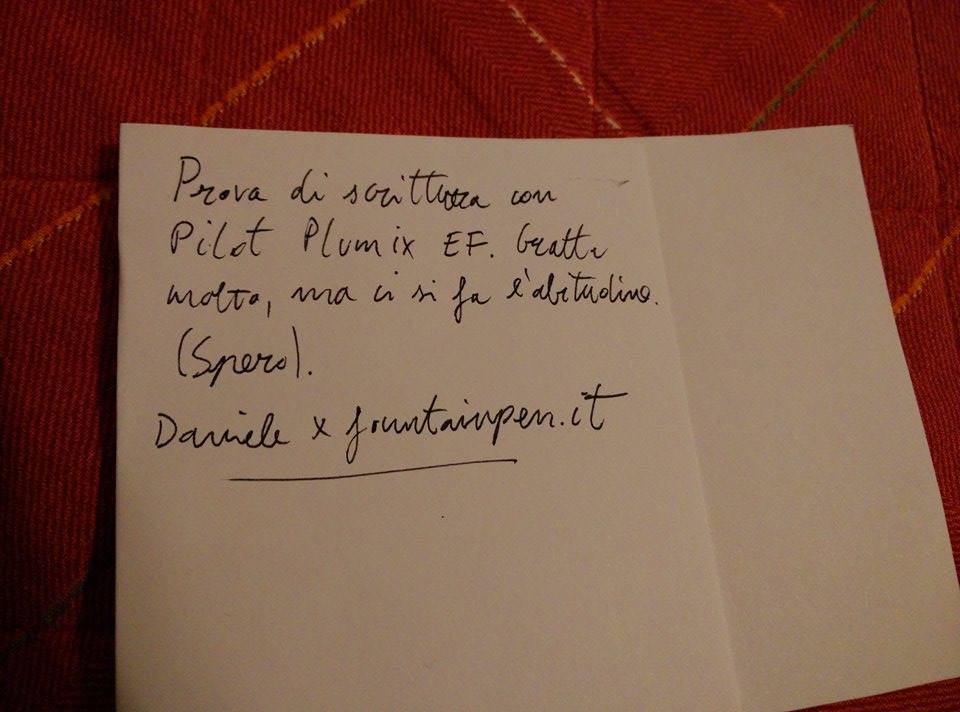 Prova di scrittura con
Pilot Plumix EF. Gratta
molto, ma ci si fa l'abitudine.
(Spero).
Daniele x fountainpen.it